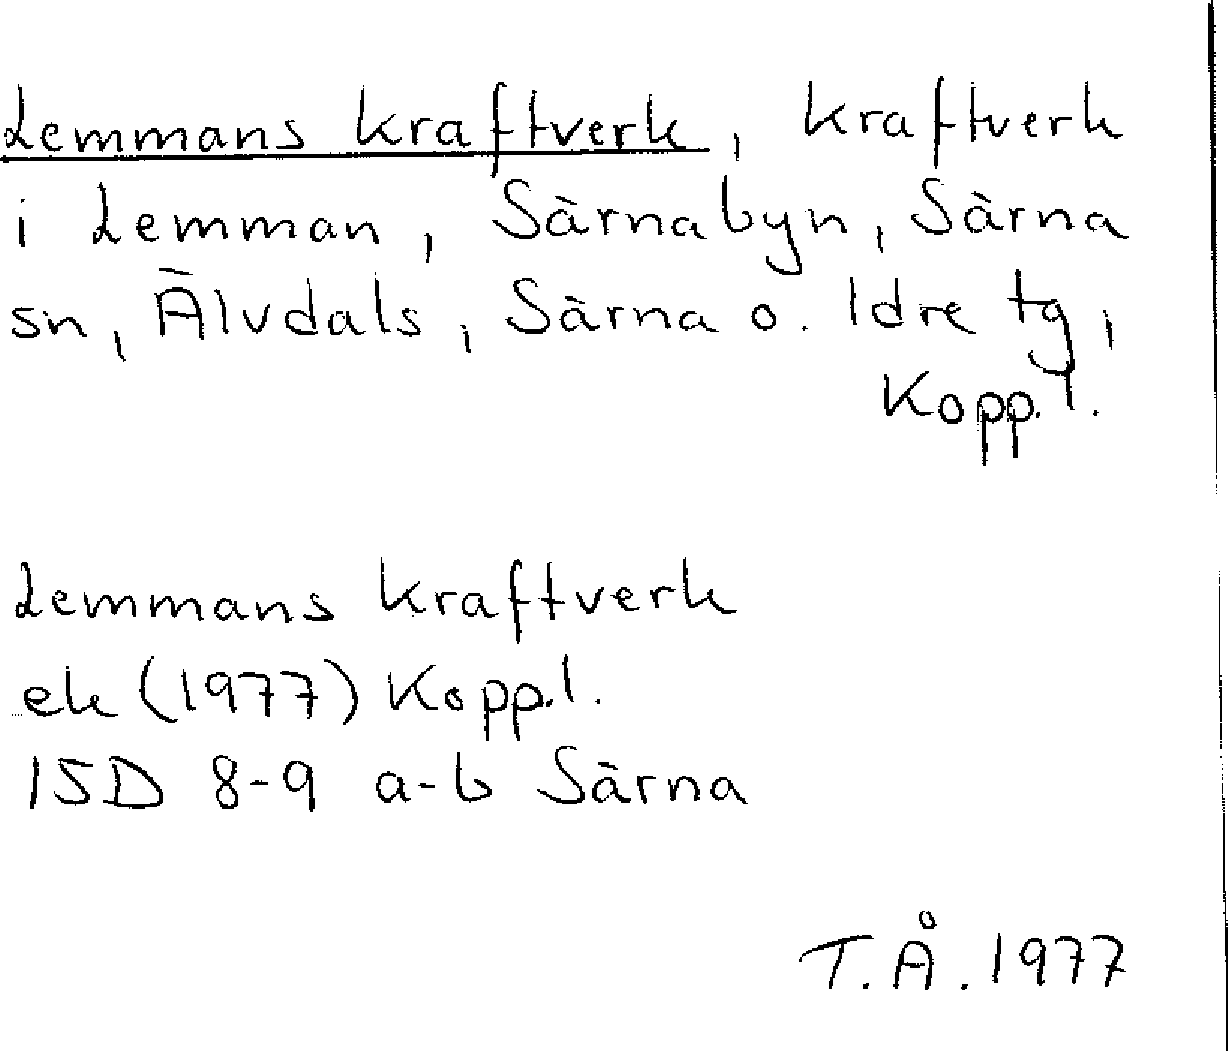 Lemmans kraftverk, kraftverk
i Lemman, Särnabyn, Särna
sn, Älvdals, Särna o. Idre tg,
Kopp.l.
Lemmans kraftverk
ek (1977) Kopp.l.
15D 8-9 a-b Särna
T.Å. 1977